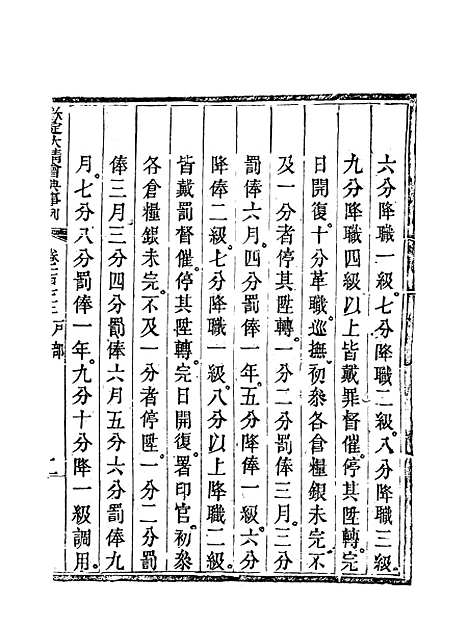 六分降職一級。七分降職二級。八分降職三級。
九分降職四級。以上皆戴罪督催。停其陞轉。完
日開復。十分革職。巡撫。初參各倉糧銀未完。不
及一分者停其陞轉。一分二分罰俸三月。三分
罰俸六月。四分罰俸一年。五分降俸一級。六分
降俸二級。七分降職一級。八分以上降職二級。
皆戴罰督催。停其陞轉。完日開復。署印官。初參
各倉糧銀未完。不及一分者停陞。一分二分罰
俸三月三分四分罰俸六月五分六分罰俸九
月。七分八分罰俸一年。九分十分降一級調用。
欽定大清會典事例 戶部